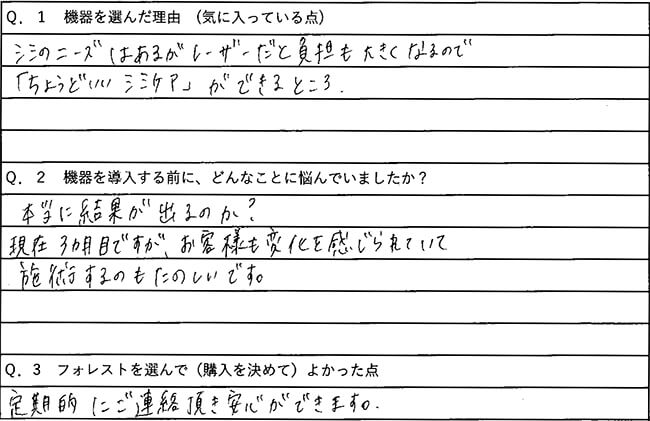 Q．1　機器を選んだ理由　（気に入っている点）
シミのニーズはあるがレーザーだと負担も大きくなるので
「ちょうどいいシミケア」ができるところ.
Q．2　機器を導入する前に、どんなことに悩んでいましたか？
本当に結果が出るのか？
現在3カ月目ですが、お客様も変化を感じられていて
施術するのもたのしいです。
Q．3　フォレストを選んで（購入を決めて）よかった点
定期的にご連絡頂き安心ができます.